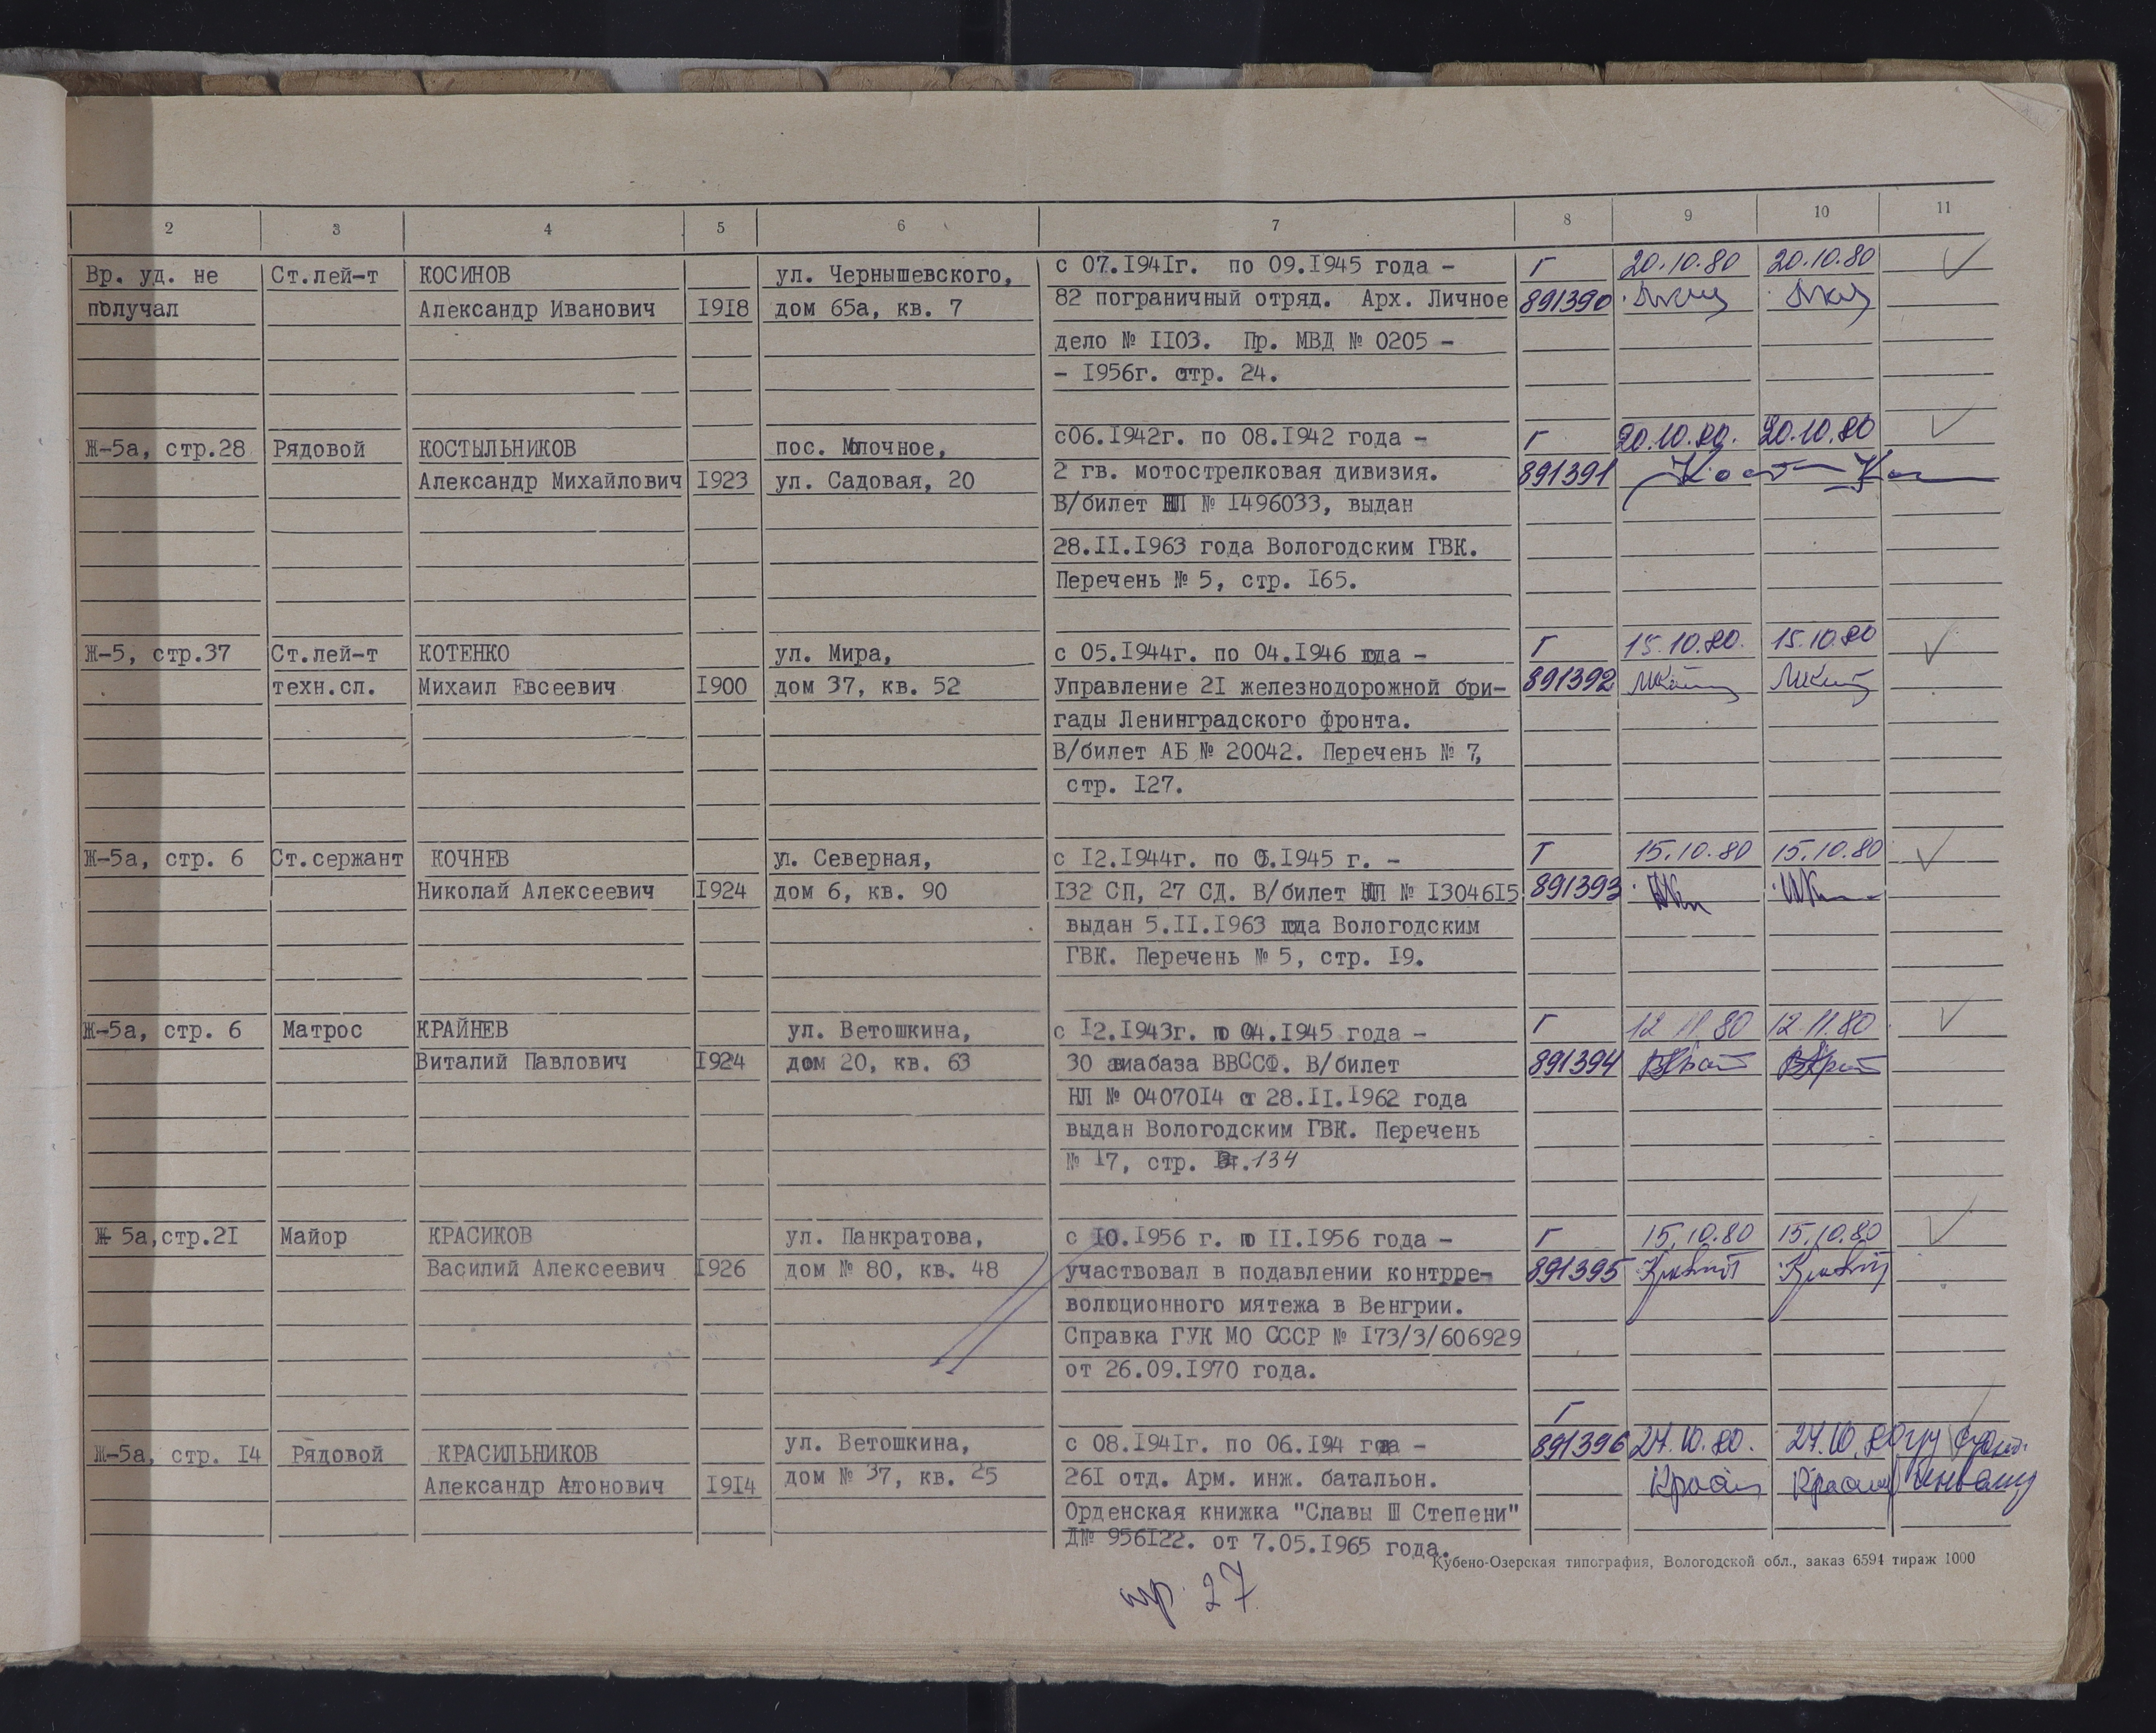 2 3 4 5 6 7 8 9 10 11
Вр. уд. не Ст.лей-т КОСИНОВ ул. Чернышевского, с 07.1941г. по 09.1945 года - Г 20.10.80 20.10.80
получал Александр Иванович 1918 дом 65а, кв. 7 82 пограничный отряд. Арх. Личное 891390
дело № 1103. Пр. МВД № 0205 -
- 1956г. стр. 24.
Ж-5а, стр.28 Рядовой КОСТЫЛЬНИКОВ пос. Молочное, с06.1942г. по 08.1942 года - Г 20.10.80. 20.10.80
Александр Михайлович 1923 ул. Садовая, 20 2 гв. мотострелковая дивизия. 891391
В/билет НП № 1496033, выдан
28.11.1963 года Вологодским ГВК.
Перечень № 5, стр. 165.
Ж-5, стр.37 Ст.лей-т КОТЕНКО ул. Мира, с 05.1944г. по 04.1946 года - Г 15.10.80. 15.10.80
техн.сл. Михаил Евсеевич 1900 дом 37, кв. 52 Управление 21 железнодорожной бри- 891392
гады Ленинградского фронта.
В/билет АБ № 20042. Перечень № 7,
стр. 127.
Ж-5а, стр. 6 Ст.сержант КОЧНЕВ ул. Северная, с 12.1944г. по 05.1945 г. - Г 15.10.80 15.10.80
Николай Алексеевич 1924 дом 6, кв. 90 132 СП, 27 СД. В/билет НП № 1304615 891393
выдан 5.11.1963 года Вологодским
ГВК. Перечень № 5, стр. 19.
Ж-5а, стр. 6 Матрос КРАЙНЕВ ул. Ветошкина, с 12.1943г. по 04.1945 года - Г 12 11 80 12.11.80
Виталий Павлович 1924 дом 20, кв. 63 30 авиабаза ВВССФ. В/билет 891394
НЛ № 0407014 от 28.11.1962 года
выдан Вологодским ГВК. Перечень
№ 17, стр. 134
Ж 5а,стр.21 Майор КРАСИКОВ ул. Панкратова, с 10.1956 г. по 11.1956 года - Г 15.10.80 15.10.80
Василий Алексеевич 1926 дом № 80, кв. 48 участвовал в подавлении контрре- 891395
волюционного мятежа в Венгрии.
Справка ГУК МО СССР № 173/3/606929
от 26.09.1970 года.
Г
Ж-5а, стр. 14 Рядовой КРАСИЛЬНИКОВ ул. Ветошкина, с 08.1941г. по 06.194 года - 891396 24.10.80. 24.10.80
Александр Антонович 1914 дом № 37, кв. 25 261 отд. Арм. инж. батальон.
Орденская книжка "Славы III Степени"
Д№ 956122. от 7.05.1965 года.
Кубено-Озерская типография, Вологодской обл., заказ 6594 тираж 1000
27